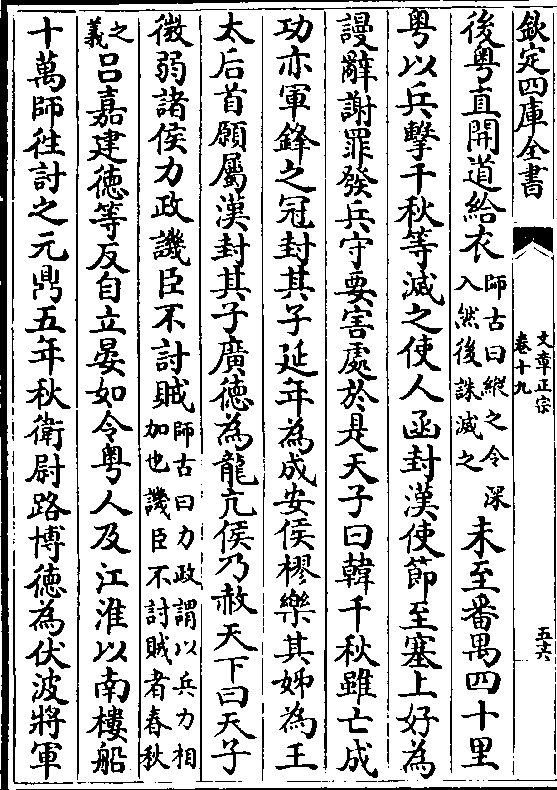 欽定四庫全書
文章正宗
卷十九
五六
後粤直開道給衣師古曰縱之令深入然後誅滅之未至番禺四十里
粤以兵擊千秋等滅之使人函封漢使節至塞上好為
謾辭謝罪發兵守要害處於是天子曰韓千秋雖亡成
功亦軍鋒之冠封其子延年為成安侯樛樂其姊為王
太后首願屬漢封其子廣德為龍亢侯乃赦天下曰天子
微弱諸侯力政譏臣不討賊師古曰力政謂以兵力相加也譏臣不討賊者春秋
之義吕嘉建德等反自立晏如令粤人及江淮以南樓船
十萬師往討之元鼎五年秋衛尉路博德為伏波將軍